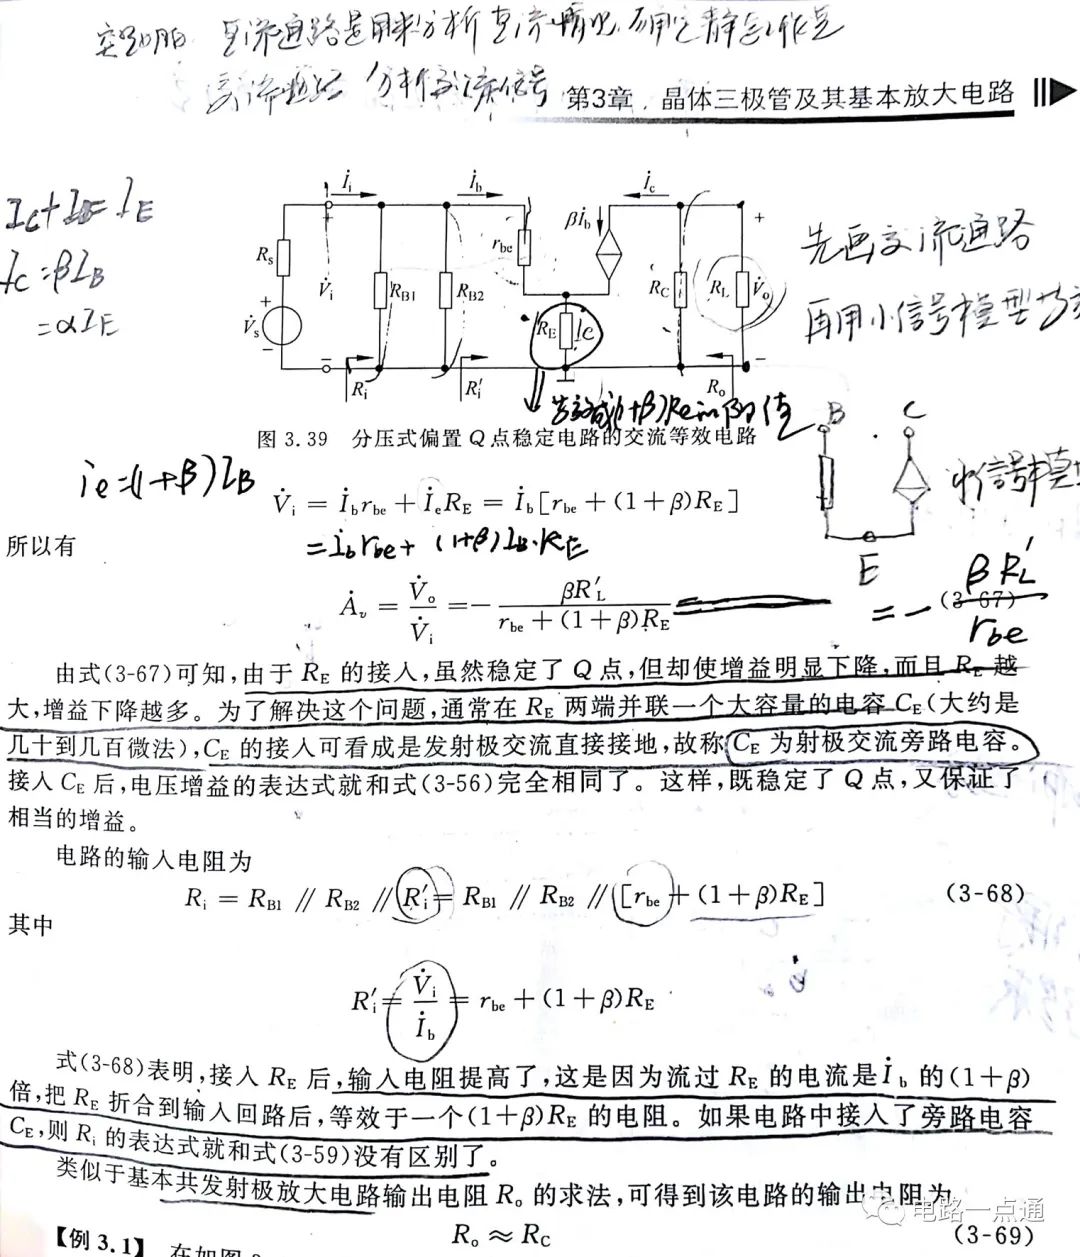 直流通路是用来分析直流情况,确定静态工作点
交流通路 分析交流信号
第3章 晶体三极管及其基本放大电路
I_C+I_B=I_E
I_C=βI_B
=αI_E
İ_i İ_b İ_c
R_s r_be βİ_b
V̇_i R_B1 R_B2 R_C R_L V̇_o
V̇_s R_E
R_i R'_i R_o
先画交流通路
再用小信号模型
(1+β)Re的阻值
图 3.39 分压式偏置 Q 点稳定电路的交流等效电路
B C
E
小信号模型
i_e=(1+β)I_B
V̇_i = İ_b r_be + İ_e R_E = İ_b[r_be + (1+β)R_E]
所以有
=İ_b r_be + (1+β)I_B·R_E
Ȧ_v = V̇_o / V̇_i = - βR'_L / (r_be + (1+β)R_E) (3-67)
= - βR'_L / r_be
由式(3-67)可知,由于 R_E 的接入,虽然稳定了 Q 点,但却使增益明显下降,而且 R_E 越
大,增益下降越多。为了解决这个问题,通常在 R_E 两端并联一个大容量的电容 C_E(大约是
几十到几百微法),C_E 的接入可看成是发射极交流直接接地,故称 C_E 为射极交流旁路电容。
接入 C_E 后,电压增益的表达式就和式(3-56)完全相同了。这样,既稳定了 Q 点,又保证了
相当的增益。
电路的输入电阻为
R_i = R_B1 // R_B2 // R'_i = R_B1 // R_B2 // [r_be + (1+β)R_E] (3-68)
其中
R'_i = V̇_i / İ_b = r_be + (1+β)R_E
式(3-68)表明,接入 R_E 后,输入电阻提高了,这是因为流过 R_E 的电流是 İ_b 的(1+β)
倍,把 R_E 折合到输入回路后,等效于一个(1+β)R_E 的电阻。如果电路中接入了旁路电容
C_E,则 R_i 的表达式就和式(3-59)没有区别了。
类似于基本共发射极放大电路输出电阻 R_o 的求法,可得到该电路的输出电阻为
R_o ≈ R_C (3-69)
【例 3.1】 在如图
电路一点通